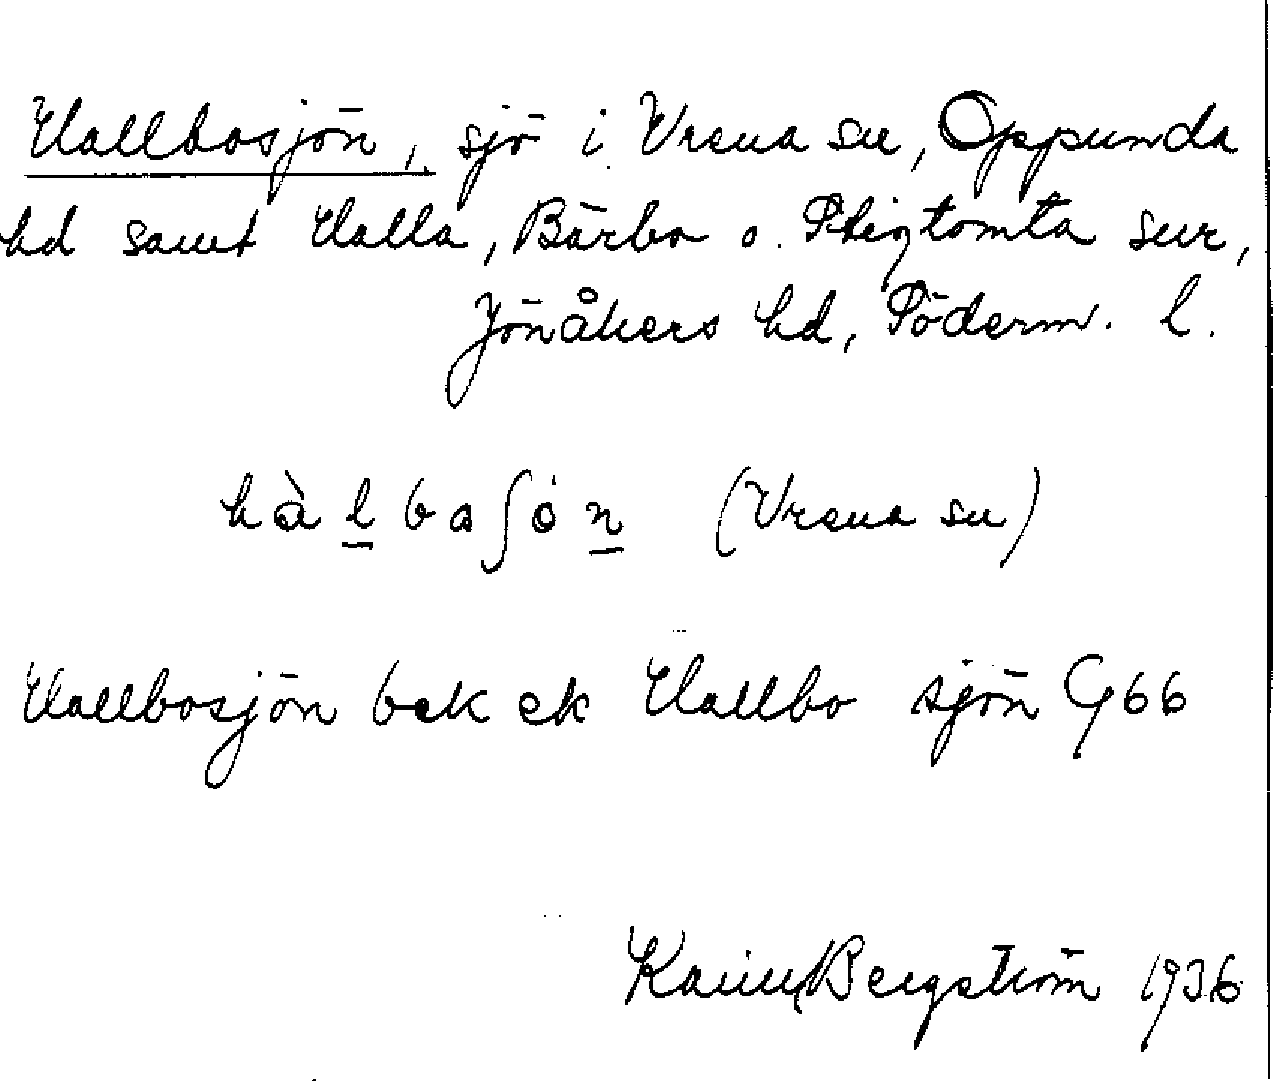 Hallbosjön, sjö i Vrena sn, Oppunda
hd samt Halla, Bärbo o. Stigtomta snr,
Jönåkers hd, Söderm. l.
hàl̲baʃön̲ (Vrena sn)
Hallbosjön bek ek Hallbo sjön G66
Karin Bergström 1936